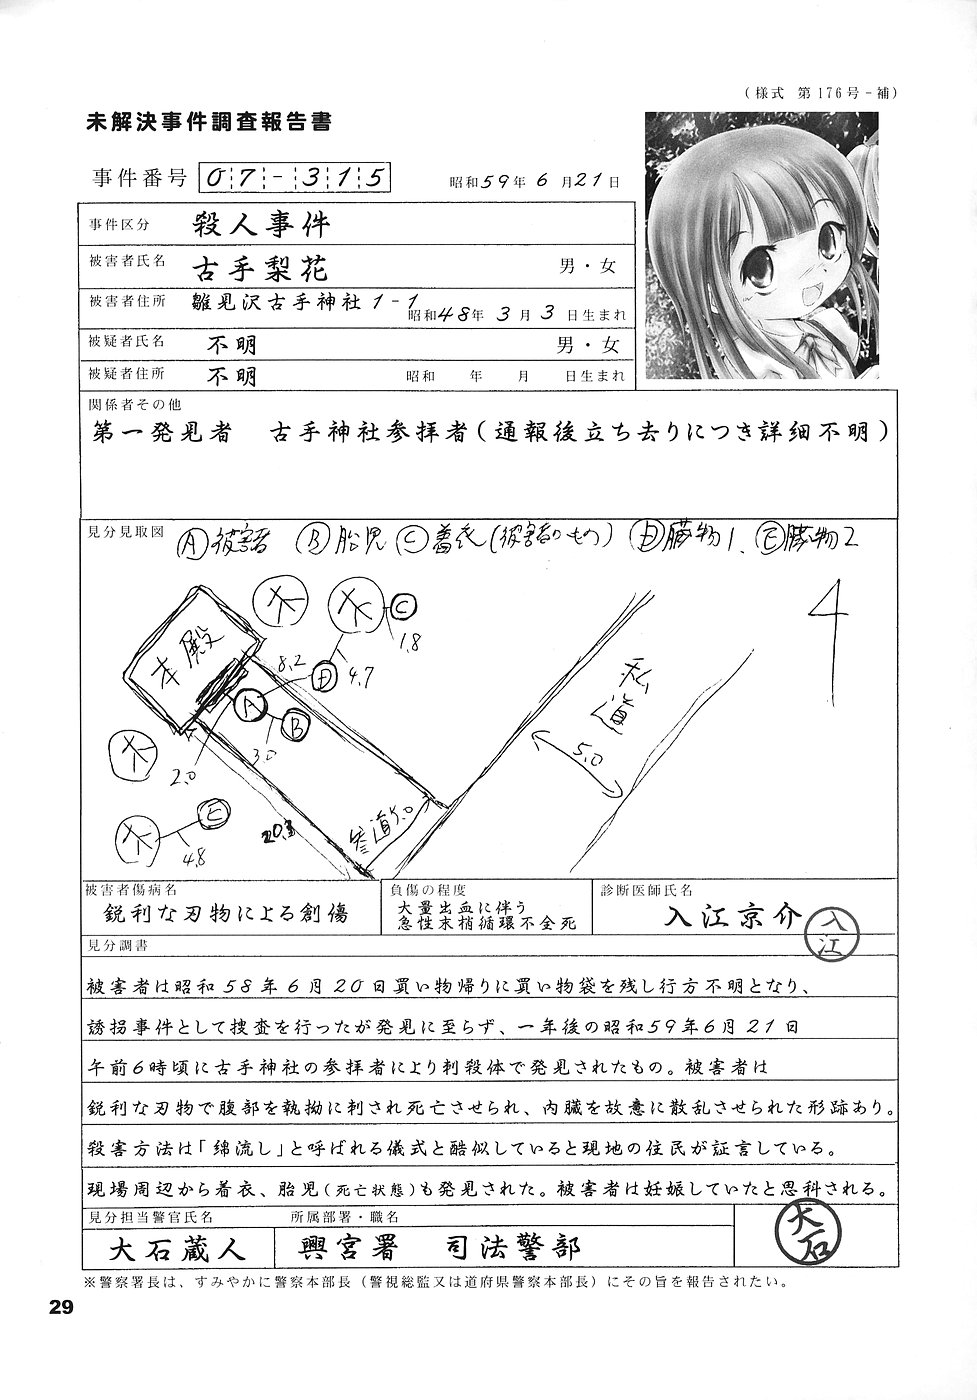 (様式 第176号-補)
未解決事件調査報告書
事件番号 07-315
昭和59年6月21日
事件区分 殺人事件
被害者氏名 古手梨花 男・女
被害者住所 雛見沢古手神社1-1 昭和48年3月3日生まれ
被疑者氏名 不明 男・女
被疑者住所 不明 昭和 年 月 日生まれ
関係者その他
第一発見者 古手神社参拝者(通報後立ち去りにつき詳細不明)
見分見取図
Ⓐ被害者 Ⓑ胎児 Ⓒ着衣(被害者のもの) Ⓓ臓物1、Ⓔ臓物2
本殿
木
木
C
1.8
8.2
D
4.7
A
B
3.0
2.0
木
木
E
4.8
20.3
参道5.0
私道
5.0
4
被害者傷病名
鋭利な刃物による創傷
負傷の程度
大量出血に伴う
急性末梢循環不全死
診断医師氏名
入江京介
入江
見分調書
被害者は昭和58年6月20日買い物帰りに買い物袋を残し行方不明となり、
誘拐事件として捜査を行ったが発見に至らず、一年後の昭和59年6月21日
午前6時頃に古手神社の参拝者により刺殺体で発見されたもの。被害者は
鋭利な刃物で腹部を執拗に刺され死亡させられ、内臓を故意に散乱させられた形跡あり。
殺害方法は「綿流し」と呼ばれる儀式と酷似していると現地の住民が証言している。
現場周辺から着衣、胎児(死亡状態)も発見された。被害者は妊娠していたと思科される。
見分担当警官氏名
大石蔵人
所属部署・職名
興宮署 司法警部
大石
※警察署長は、すみやかに警察本部長(警視総監又は道府県警察本部長)にその旨を報告されたい。
29